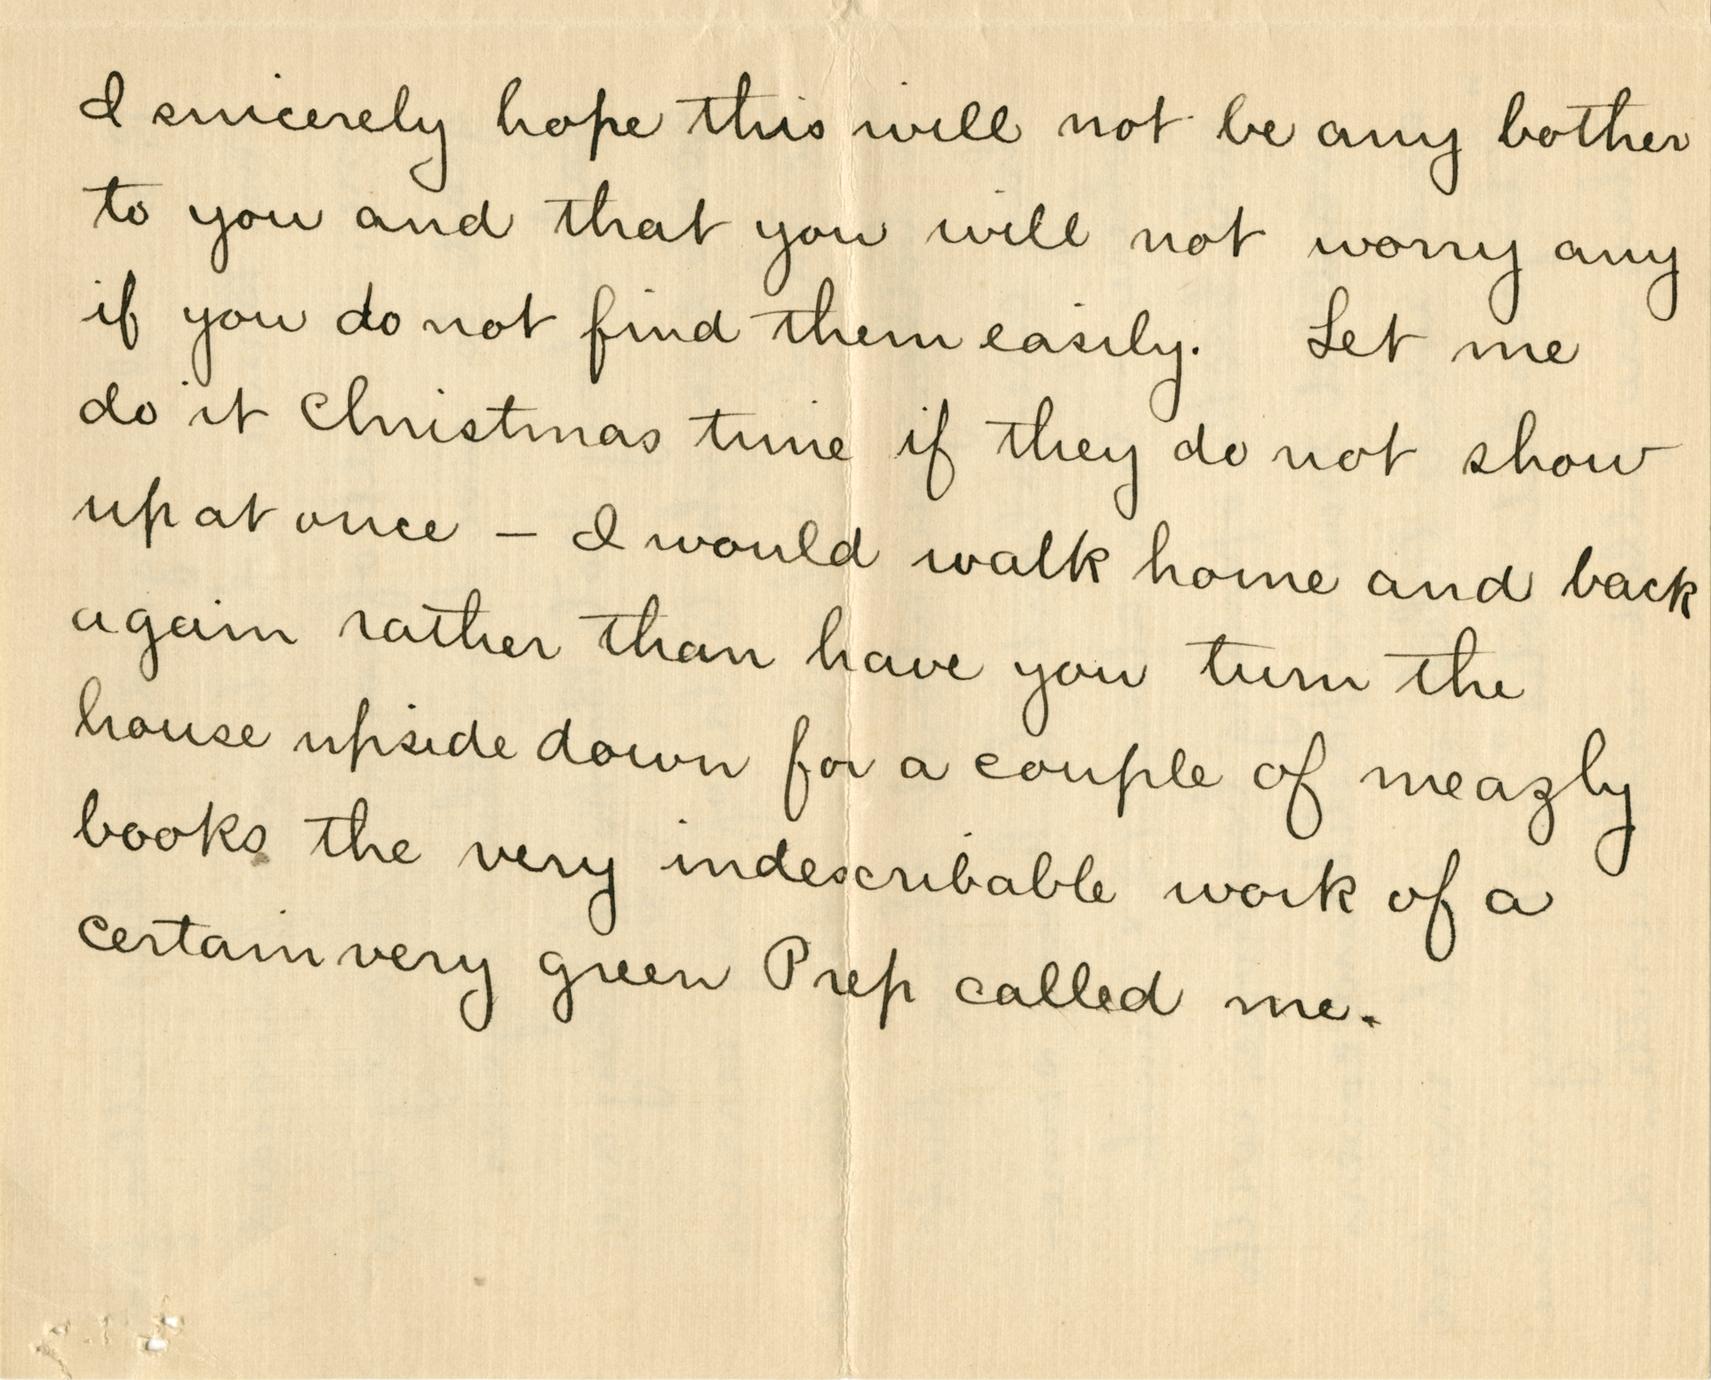 I sincerely hope this will not be any bother
to you and that you will not worry any
if you do not find them easily. Let me
do it Christmas time if they do not show
up at once – I would walk home and back
again rather than have you turn the
house upside down for a couple of meazly
books the very indescribable work of a
certain very green Prep called me.